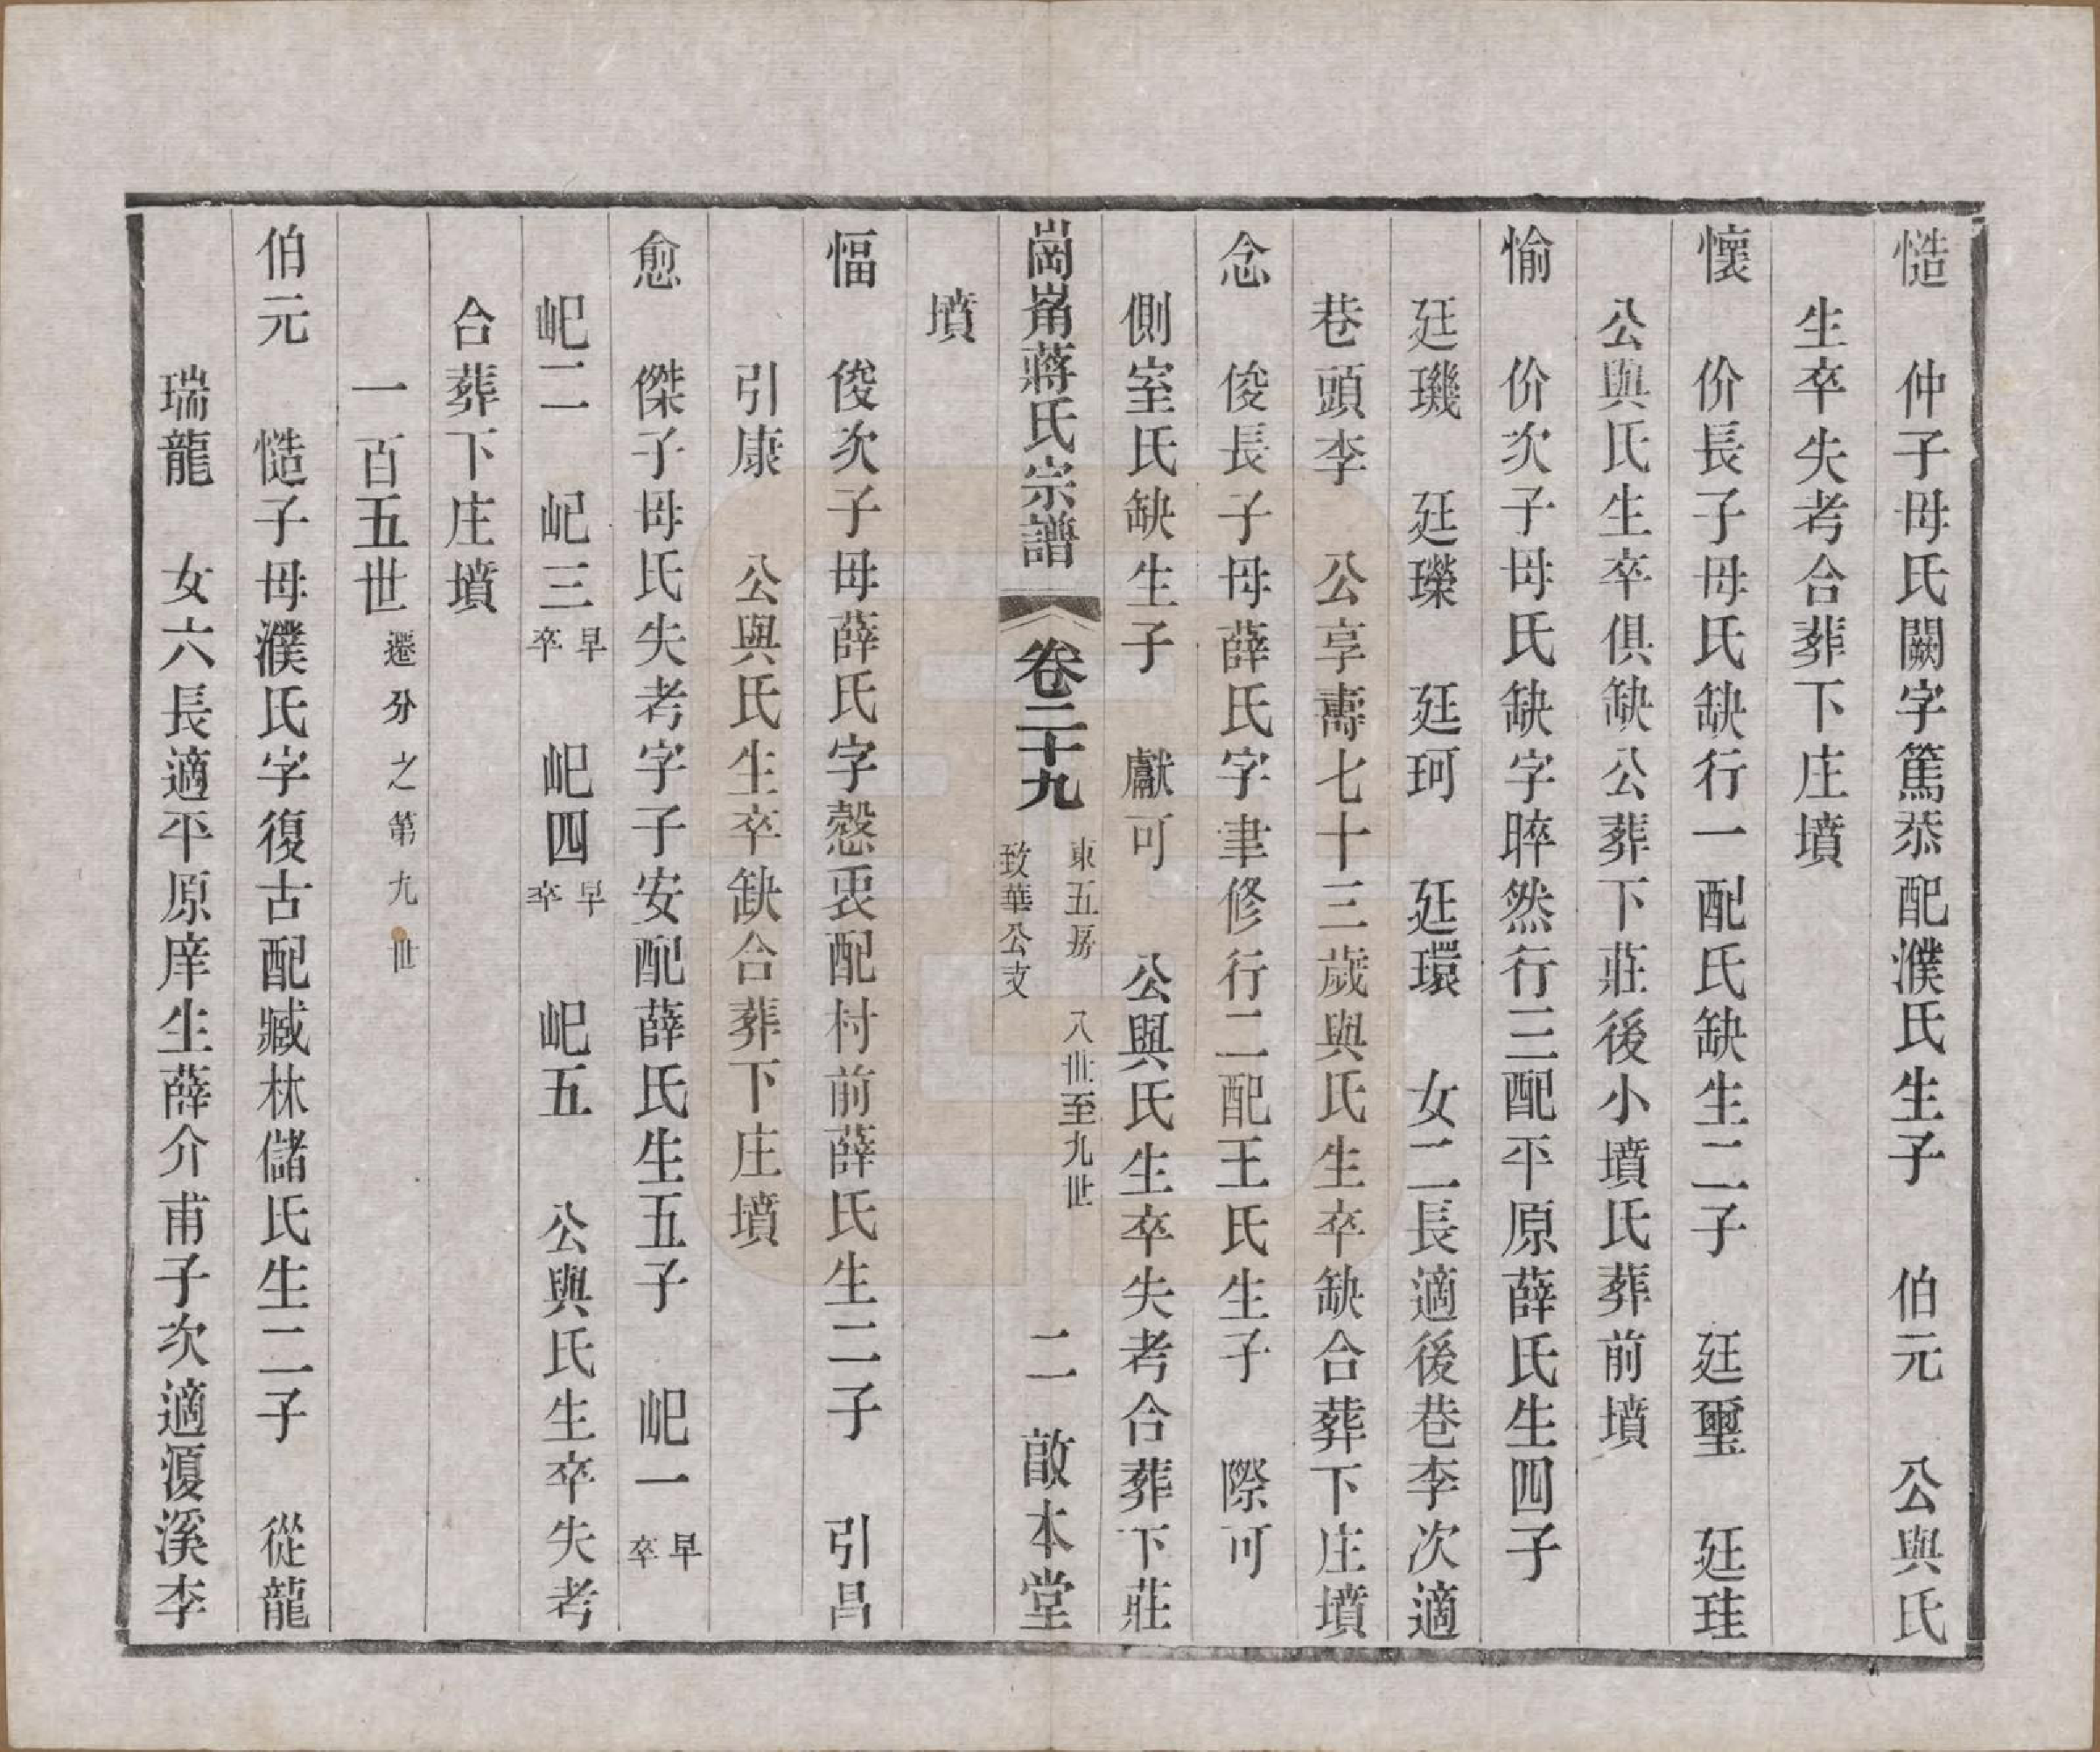 慥　仲子母氏闕字篤恭配濮氏生子　伯元　公與氏
生卒失考合葬下庄墳
懷　价長子母氏缺行一配氏缺生二子　廷璽　廷珪
公與氏生卒俱缺公葬下莊後小墳氏葬前墳
愉　价次子母氏缺字晬然行三配平原薛氏生四子
廷璣　廷瓅　廷珂　廷環　女二長適後巷李次適
巷頭李　公享壽七十三歲與氏生卒缺合葬下庄墳
念　俊長子母薛氏字聿修行二配王氏生子　際可
側室氏缺生子　獻可　公與氏生卒失考合葬下莊
崗崗蔣氏宗譜　卷二十九　東五房　致華公支　八世至九世　二　敵本堂
墳
愊　俊次子母薛氏字慤衷配村前薛氏生二子　引昌
引康　公與氏生卒缺合葬下庄墳
愈　傑子母氏失考字子安配薛氏生五子　屺一早卒
屺二　屺三早卒　屺四早卒　屺五　公與氏生卒失考
合葬下庄墳
一百五世遷分之第九世
伯元　慥子母濮氏字復古配臧林儲氏生二子　從龍
瑞龍　女六長適平原庠生薛介甫子次適溭溪李